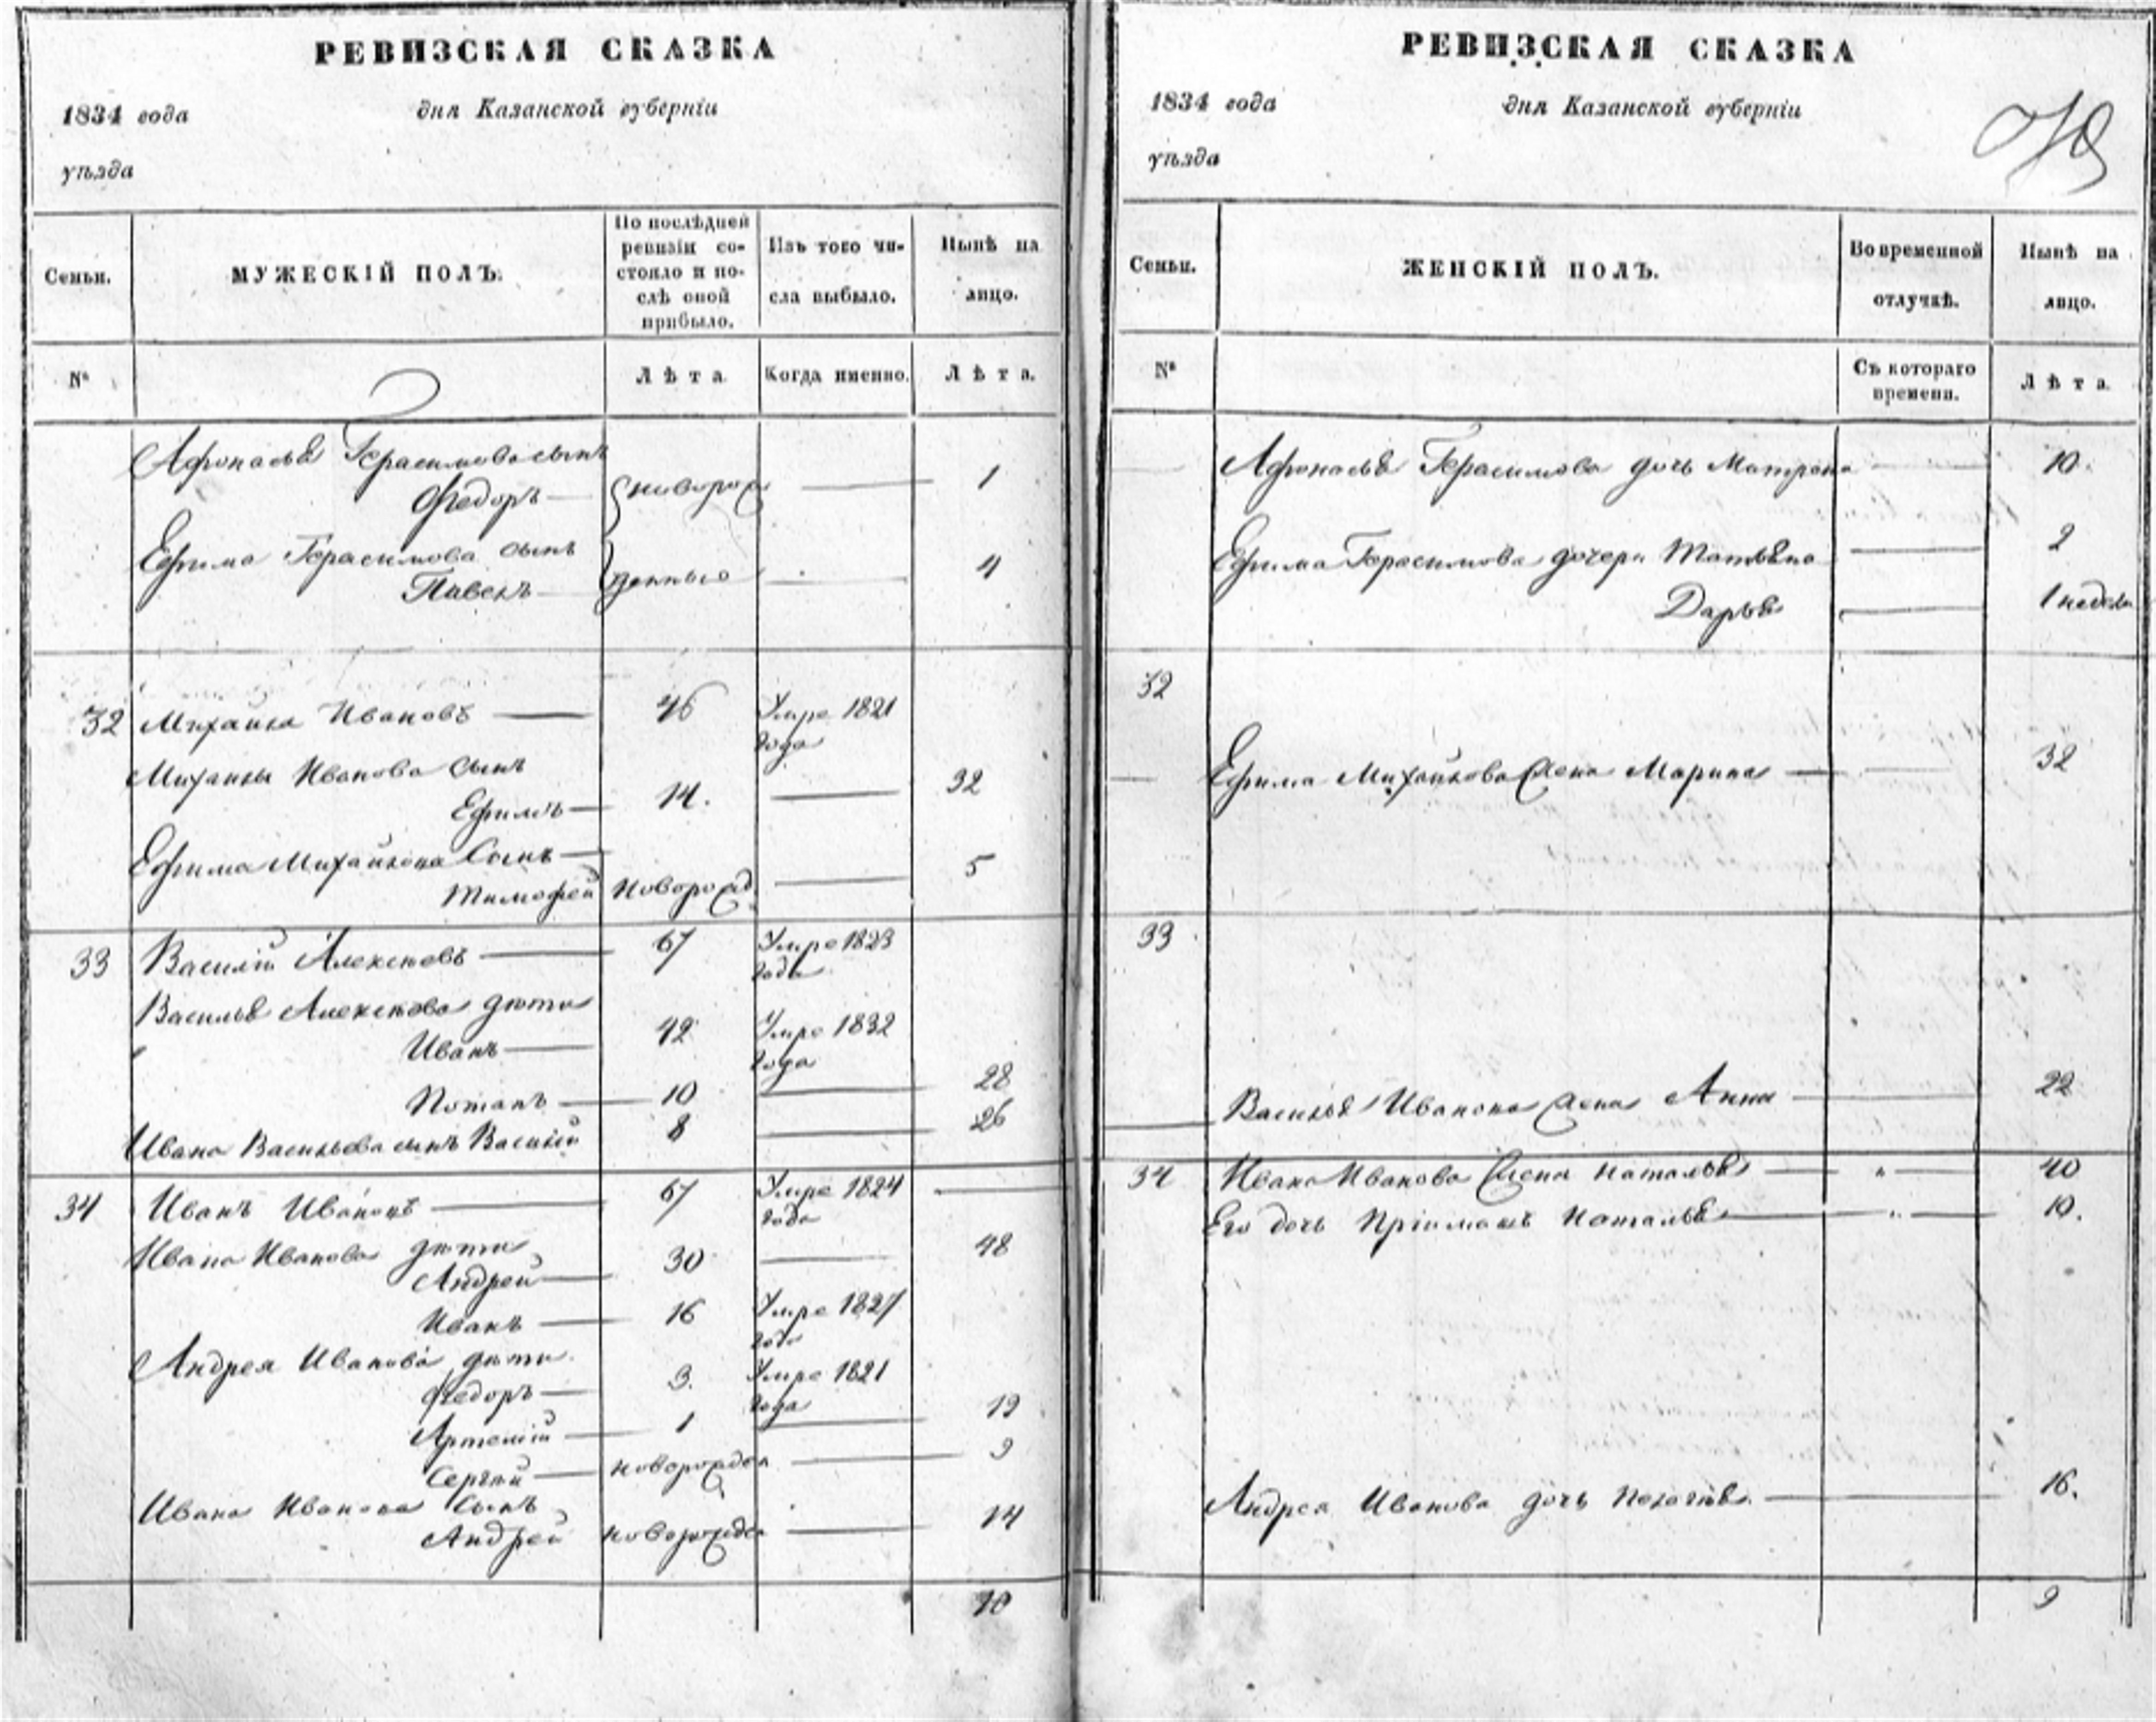 РЕВИЗСКАЯ СКАЗКА
1834 года дня Казанской губерніи
уѣзда
Семьи.
МУЖЕСКІЙ ПОЛЪ.
По послѣдней
ревизіи со-
стояло и по-
слѣ оной
прибыло.
Изъ того чи-
сла выбыло.
Нынѣ на
лицо.
№
Лѣта
Когда именно.
Лѣта.
Афонасья Герасимова сынъ
Федоръ новорож 1
Ефима Герасимова сынъ
Павелъ денныя 4
32 Михайла Ивановъ 46 Умре 1821
года
Михайлы Иванова сынъ
Ефимъ 14. 32
Ефима Михайлова Сынъ
Тимофей Новорожд. 5
33 Василій Алексѣевъ 67 Умре 1823
года
Василья Алексѣева дѣти
Иванъ 42 Умре 1832
года
Потапъ 10 28
Ивана Васильева сынъ Василій 8 26
34 Иванъ Ивановъ 67 Умре 1824
года
Ивана Иванова дѣти
Андрей 30 48
Иванъ 16 Умре 1827
года
Андрея Иванова дѣти
Федоръ 3. Умре 1821
года
Артемій 1 19
Сергѣй новорожден 9
Ивана Иванова Сынъ
Андрей новорожден 14
10
РЕВИЗСКАЯ СКАЗКА
1834 года дня Казанской губерніи
уѣзда
Семьи.
ЖЕНСКІЙ ПОЛЪ.
Во временной
отлучкѣ.
Нынѣ на
лицо.
№
Съ котораго
времени.
Лѣта
Афонасья Герасимова дочь Матрена 10.
Ефима Герасимова дочери Татьяна 2
Дарья 1 неделя
32
Ефима Михайлова Жена Марина 32
33
Василья Иванова Жена Анна 22
34 Ивана Иванова Жена Наталья " 40
Его дочь Наталья " 10.
Андрея Иванова дочь Пелагѣя 16.
9